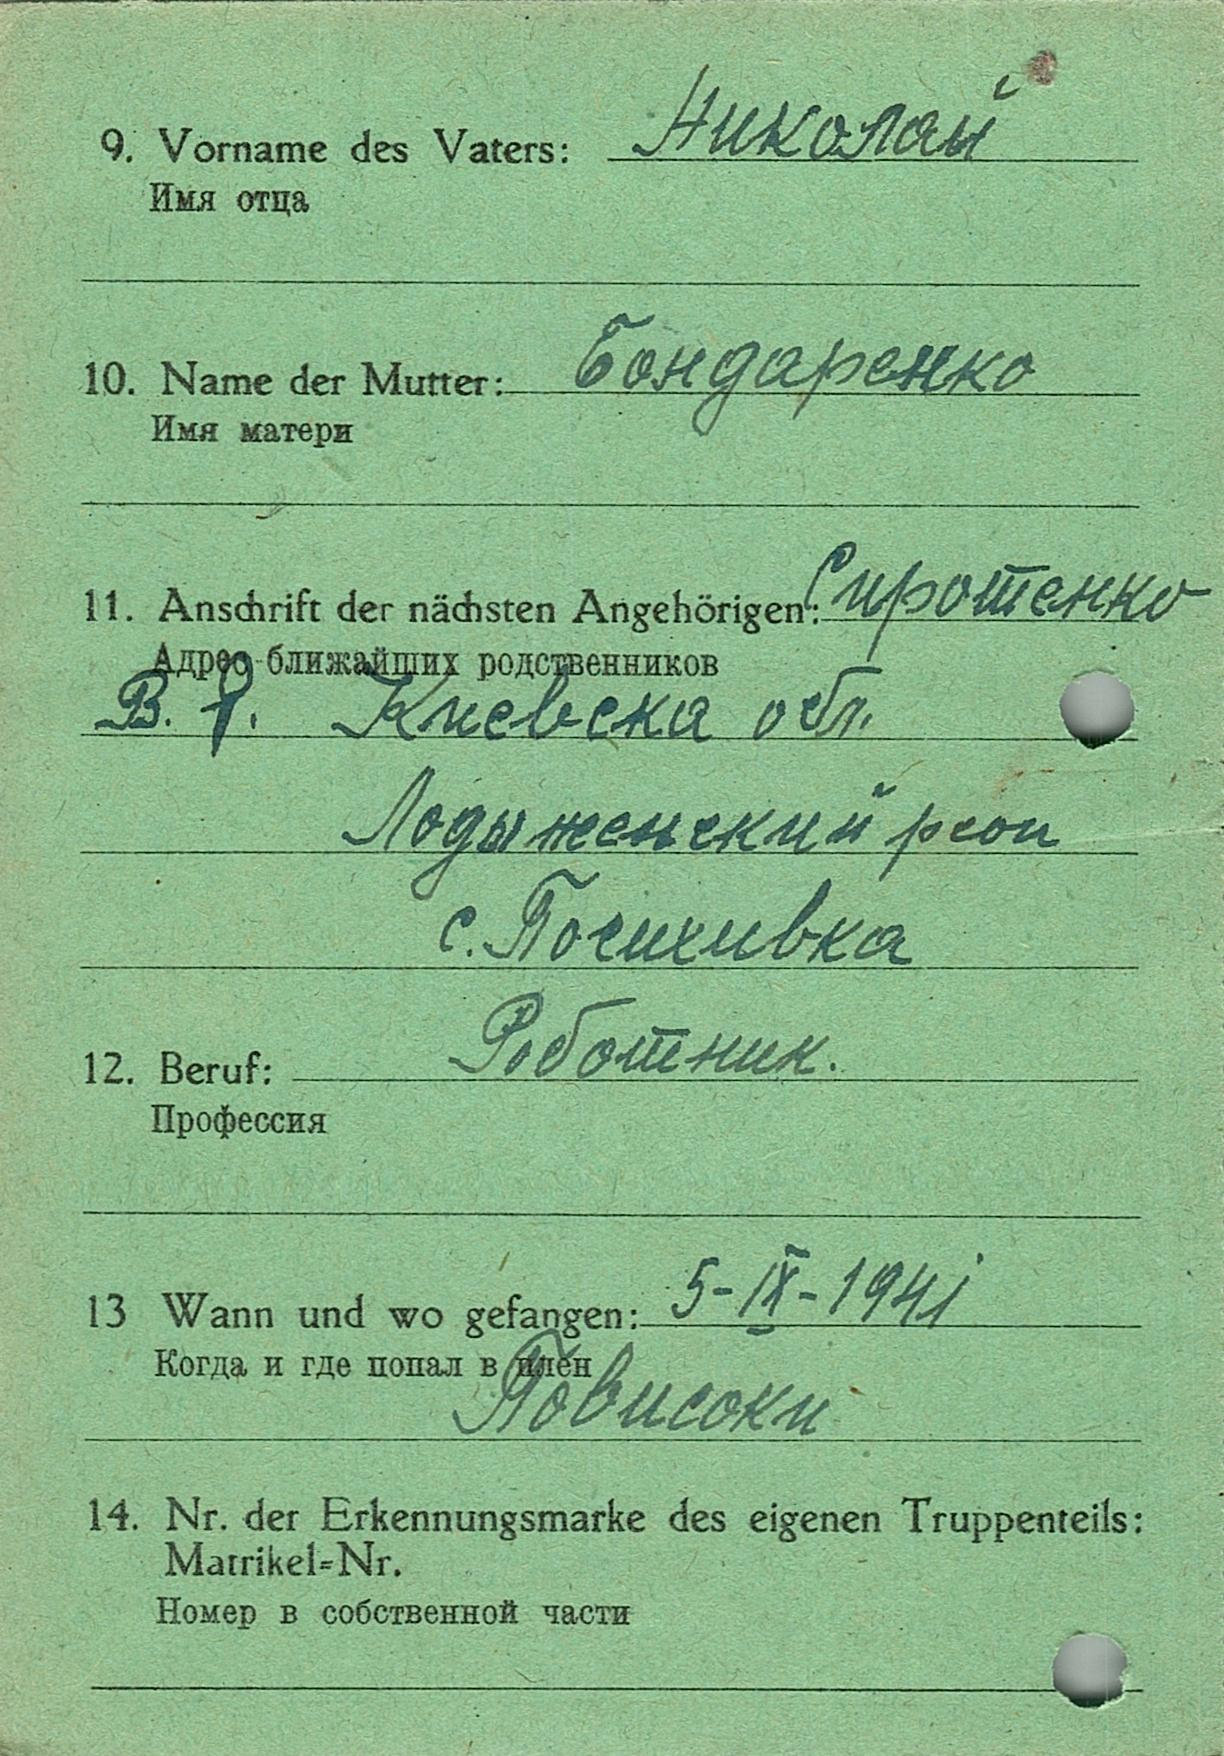 9. Vorname des Vaters: Николай
Имя отца
10. Name der Mutter: Бондаренко
Имя матери
11. Anschrift der nächsten Angehörigen: Сиротенко
Адрес ближайших родственников
В. Я. Киевска обл.
Лодыженский рион
с. Посихивка
12. Beruf: Роботник.
Профессия
13 Wann und wo gefangen: 5-IX-1941
Когда и где попал в плен
Повисоки
14. Nr. der Erkennungsmarke des eigenen Truppenteils:
Matrikel=Nr.
Номер в собственной части